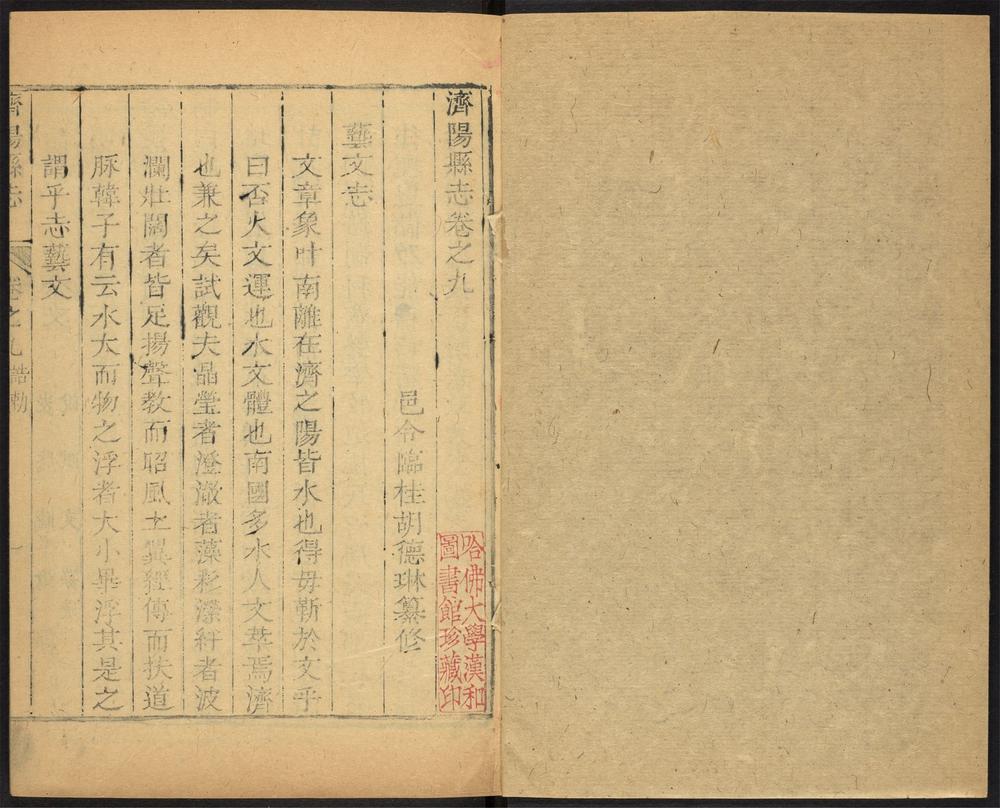 濟陽縣志卷之九
哈佛大學漢和
圖書館珍藏印
邑令臨桂胡德琳纂修
藝文志
文章象叶南離在濟之陽皆水也得毋靳於文乎
曰否火文運也水文體也南國多水人文萃焉濟
也兼之矣試觀夫晶瑩者澄澂者藻彩瀠紆者波
瀾壯闊者皆足揚聲教而昭風土翼經傳而扶道
脉韓子有云水大而物之浮者大小畢浮其是之
謂乎志藝文
濟陽縣志
卷之九 誥勅
一